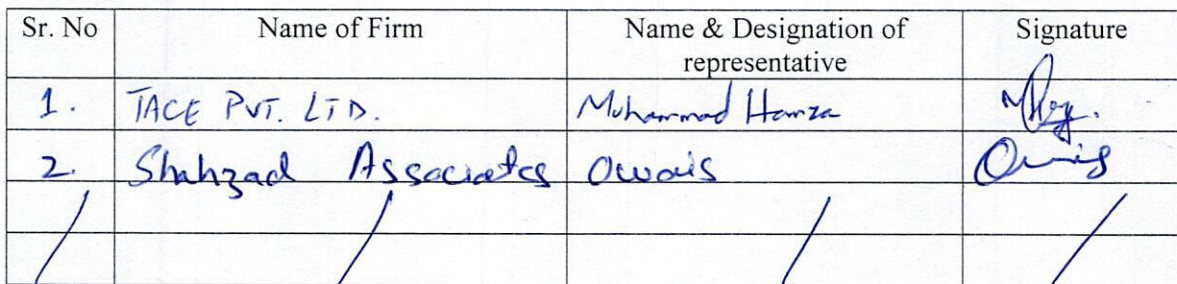 Sr. No Name of Firm Name & Designation of representative Signature
1. TACE PVT. LTD. Muhammad Hamza
2. Shahzad Associates Owais Owais